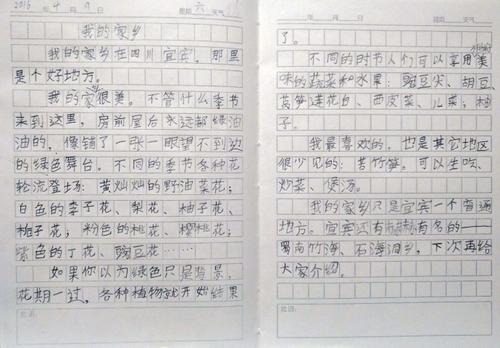 2016 年 4 月 9 日 星期 六 天气
我的家乡
我的家乡在四川宜宾，那里
是个好地方。
我的家乡很美。不管什么季节
来到这里，房前屋后永远都绿油
油的，像铺了一张一眼望不到边
的绿色舞台。不同的季节各种花
轮流登场：黄灿灿的野油菜花；
白色的李子花、梨花、柚子花、
桃子花；粉色的桃花、樱桃花；
紫色的丁花、豌豆花……
如果你以为绿色只是背景，
花期一过，各种植物就开始结果
批语：
年 月 日 星期 天气
了。
不同的时节人们可以享用美
味的蔬菜和水果：豌豆尖、胡豆、
莴笋莲花白、西皮菜、儿菜；柚
子。
我最喜欢的，也是其它地区
很少见的：苦竹笋。可以生吃、
炒菜、煲汤。
我的家乡只是宜宾一个普通
地方。宜宾还有有名的——
蜀南竹海、石海洞乡，下次再给
大家介绍。
批语：